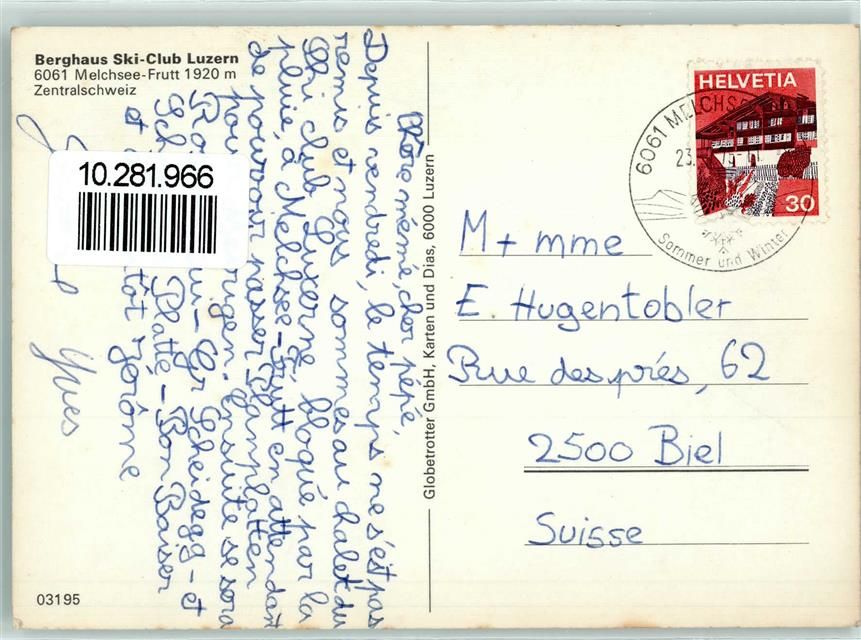 Berghaus Ski-Club Luzern
6061 Melchsee-Frutt 1920 m
Zentralschweiz
Chère mémé, cher pépé,
Depuis vendredi, le temps ne s'est pas
remis et nous sommes au chalet du
Ski club Lucerne bloqué par la
pluie, à Melchsee-Frutt en attendant
de pouvoir passer Planplatten
pour Ensuite se sera
Gr Scheidegg - et
Platte - Bon Baiser
et Jérôme
Yves
10.281.966
03195
Globetrotter GmbH, Karten und Dias, 6000 Luzern
HELVETIA
30
6061 MELCHS
23.
Sommer und Winter
M + mme
E. Hugentobler
Rue des prés, 62
2500 Biel
Suisse